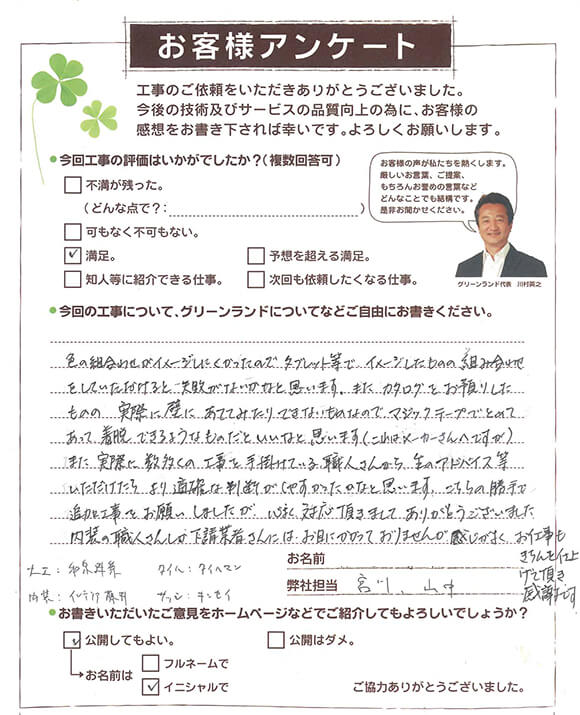 お客様アンケート
工事のご依頼をいただきありがとうございました。
今後の技術及びサービスの品質向上の為に、お客様の
感想をお書き下されば幸いです。よろしくお願いします。
●今回工事の評価はいかがでしたか?(複数回答可)
□ 不満が残った。
(どんな点で?: )
□ 可もなく不可もない。
☑ 満足。 □ 予想を超える満足。
□ 知人等に紹介できる仕事。 □ 次回も依頼したくなる仕事。
お客様の声が私たちを熱くします。
厳しいお言葉、ご提案、
もちろんお誉めの言葉など
どんなことでも結構です。
是非お聞かせください。
グリーンランド代表 川村英之
●今回の工事について、グリーンランドについてなどご自由にお書きください。
色の組合わせがイメージしにくかったので タブレット等で イメージしたものの 組み合わせ
をしていただけると 失敗がないかなと思います。また カタログを お預りした
ものの 実際に 壁に あててみたり できないものなので マジックテープで とめて
あって 着脱 できるようなものだと いいなと 思います(これはメーカーさんへですが)
また 実際に 数多くの 工事を 手掛けている 職人さんから 生のアドバイス等
いただけたら より 適確な判断が しやすかったのかなと思います。こちらの勝手で
追加工事を お願い しましたが 心よく 対応 頂きまして ありがとうございました
内装の職人さんしか 下請業者さんには お目にかかって おりませんが 感じがよく、お仕事も
きちんと仕上
げて頂き
感謝です
お名前
大工: タイル:タイルマン
弊社担当 宮川、山中
内装:インテリア サッシ:
●お書きいただいたご意見をホームページなどでご紹介してもよろしいでしょうか?
☑ 公開してもよい。 □ 公開はダメ。
お名前は □ フルネームで
☑ イニシャルで
ご協力ありがとうございました。